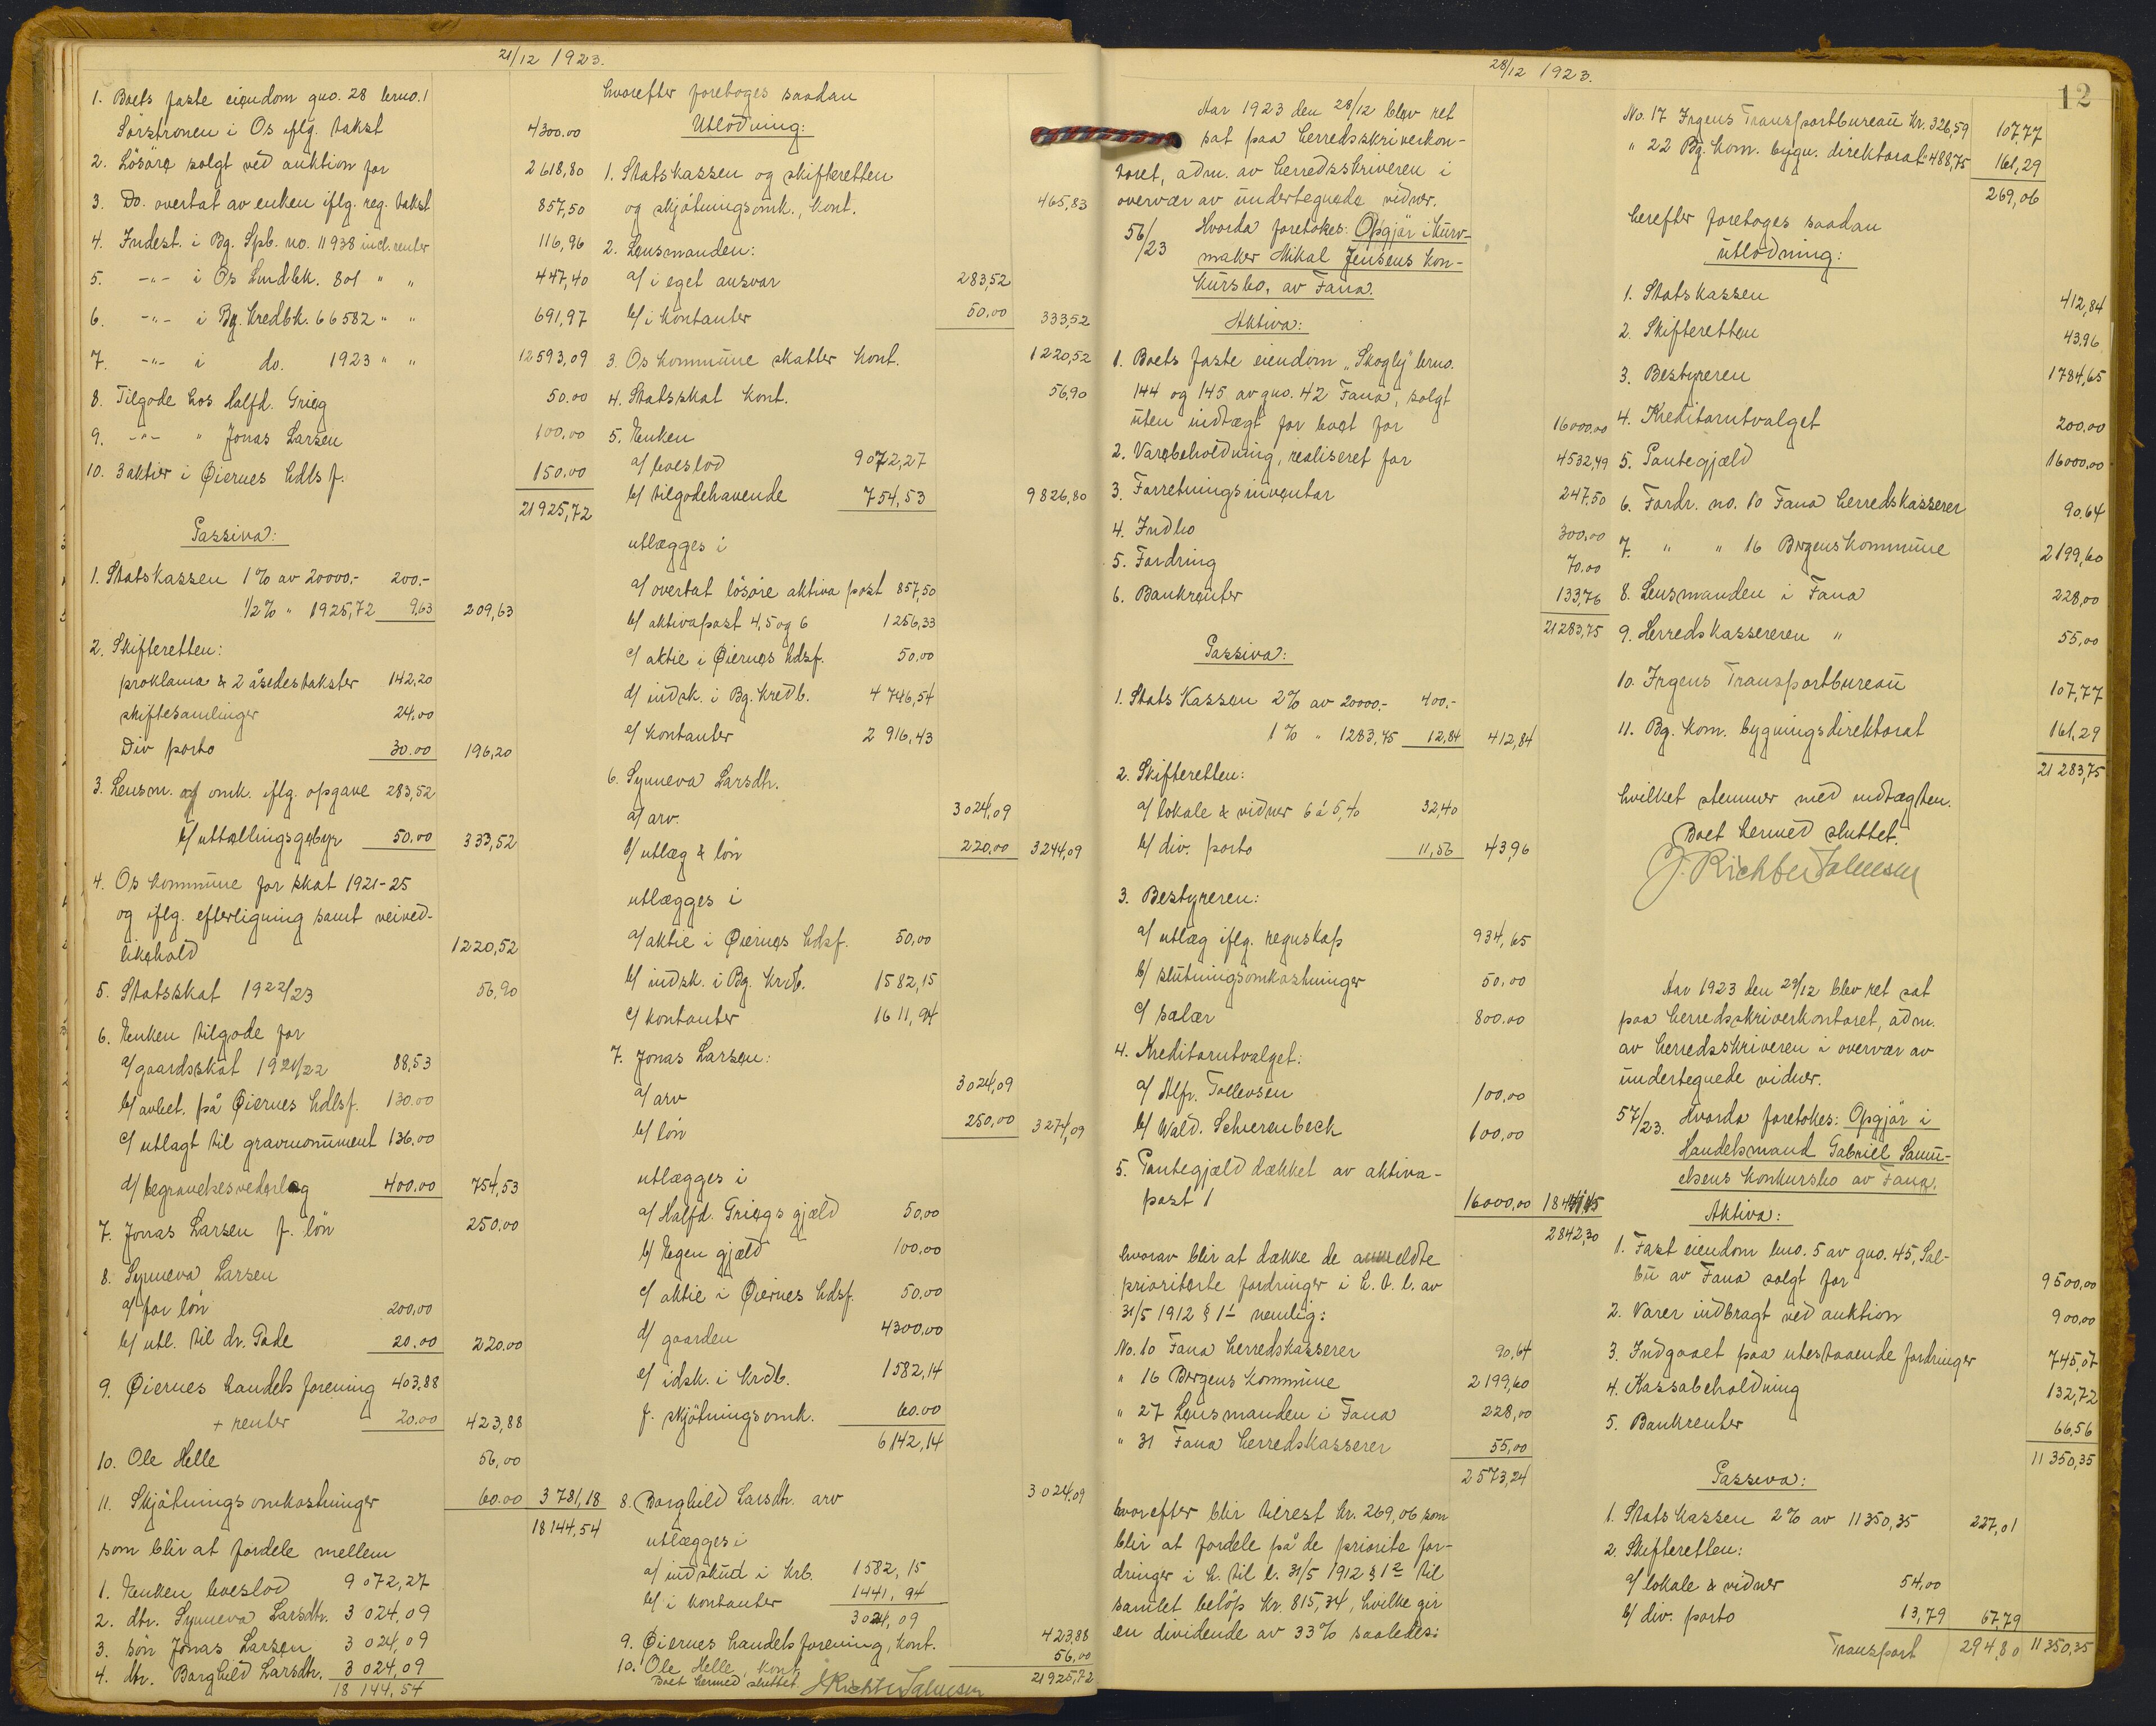 21/12 1923.
1. Boets faste eiendom gno. 28 brno. 1
Sörströnen i Os iflg. takst 4300.00
2. Lösöre solgt ved auktion for 2618,80
3. Do. overtat av enken iflg. reg. takst 857,50
4. Indest. i Bg. Spb. no. 11938 incl. renter 116,96
5. -"- i Os Lmdbk. 801 " " 447,40
6. -"- i Bg. Kredbk. 66582 " " 691,97
7. -"- i do. 1923 " " 12593,09
8. Tilgode hos Halfd. Grieg 50.00
9. -"- " Jonas Larsen 100,00
10. 3 aktier i Øiernes hdls f. 150.00
21925,72
Passiva:
1. Statskassen 1% av 20000,- 200.-
1/2% " 1925,72 9,63 209,63
2. Skifteretten:
proklama & 2 åsedestakster 142,20
skiftesamlinger 24,00
Div porto 30.00 196,20
3. Lensm. a/ omk. iflg. opgave 283,52
b/ uttællingsgebyr 50.00 333,52
4. Os kommune for skat 1921-25
og iflg. efterligning samt veived-
likehold 1220,52
5. Statsskat 1922/23 56,90
6. Enken tilgode for
a/ gaardsskat 1921/22 88,53
b/ avbet. på Øiernes hdlsf. 130.00
c/ utlagt til gravmonument 136,00
d/ begravelsesvederlag 400.00 754,53
7. Jonas Larsen f. lön 250,00
8. Synneva Larsen
a/ for lön 200,00
b/ utl. til dr. Gade 20.00 220.00
9. Øiernes handels forening 403,88
+ renter 20.00 423,88
10. Ole Helle 56,00
11. Skjötningsomkostninger 60.00 3781,18
18144,54
som blir at fordele mellem
1. Enken boeslod 9072,27
2. dtr. Synneva Larsdtr. 3024,09
3. sön Jonas Larsen 3024,09
4. dtr. Borghild Larsdtr. 3024,09
18144,54
hvorefter foretoges saadan
Utlodning:
1. Statskassen og skifteretten
og skjötningsomk., kont. 465,83
2. Lensmanden:
a/ i eget ansvar 283,52
b/ i kontanter 50,00 333,52
3. Os kommune skatter kont. 1220,52
4. Statsskat kont. 56,90
5. Enken
a/ boeslod 9072,27
b/ tilgodehavende 754,53 9826,80
utlægges i
a/ overtat lösöre aktiva post 857,50
b/ aktivapost 4, 5 og 6 1256,33
c/ aktie i Øiernes hdsf. 50.00
d/ indsk. i Bg. kredb. 4746,54
e/ kontanter 2916,43
6. Synneva Larsdtr.
a/ arv. 3024,09
b/ utlæg & lön 220.00 3244,09
utlægges i
a/ aktie i Øiernes hdsf. 50,00
b/ indsk. i Bg. krdb. 1582,15
c/ kontanter 1611,94
7. Jonas Larsen:
a/ arv 3024,09
b/ lön 250,00 3274,09
utlægges i
a/ Halfd. Griegs gjæld 50,00
b/ Egen gjæld 100,00
c/ aktie i Øiernes hdsf. 50.00
d/ gaarden 4300,00
e/ idsk. i krdb. 1582,14
f. skjötningsomk. 60.00
6142,14
8. Borghild Larsdtr. arv 3024,09
utlægges i
a/ indskud i krb. 1582,15
b/ i kontanter 1441,94
3024,09
9. Øiernes handelsforening, kont. 423,88
10. Ole Helle, kont. 56,00
Boet hermed sluttet. 21925,72
28/12 1923.
12
Aar 1923 den 28/12 blev ret
sat paa herredsskriverkon-
toret, adm. av herredsskriveren i
overvær av undertegnede vidner.
56/23 Hvorda foretokes: Opgjör i Kurv-
maker Mikal Jensens kon-
kursbo, av Fana.
Aktiva:
1. Boets faste eiendom "Skogly" brno.
144 og 145 av gno. 42 Fana, solgt
uten indtægt for boet for 16000,00
2. Varebeholdning, realiseret for 4532,49
3. Forretningsinventar 247,50
4. Indbo 300,00
5. Fordring 70.00
6. Bankrenter 133,76
21283,75
Passiva:
1. Stats Kassen 2% av 20000.- 400.-
1% " 1283,75 12,84 412,84
2. Skifteretten:
a/ lokale & vidner 6 à 5,40 32,40
b/ div. porto 11,56 43,96
3. Bestyreren:
a/ utlæg iflg. regnskap 934,65
b/ slutningsomkostninger 50,00
c/ salær 800.00
4. Kreditorutvalget:
a/ Alfr. Tollevsen 100,00
b/ Wald. Schierenbeck 100,00
5. Pantegjæld dækket av aktiva-
post 1 16000,00 18441,45
2842,30
hvorav blir at dække de anmeldte
prioriterte fordringer i h. t. l. av
31/5 1912 § 1-1 nemlig:
No. 10 Fana herredskasserer 90,64
" 16 Bergens kommune 2199,60
" 27 Lensmanden i Fana 228,00
" 31 Fana herredskasserer 55,00
2573,24
hvorefter blir tilrest kr. 269,06 som
blir at fordele på de priorite for-
dringer i h. til l. 31/5 1912 § 1-2 til
samlet belöp kr. 815,34, hvilke gir
en dividende av 33% saaledes:
No. 17 Irgens Transportbureau kr. 326,59 107,77
" 22 Bg. kom. bygn. direktorat " 488,75 161,29
269,06
herefter foretoges saadan
utlodning:
1. Statskassen 412,84
2. Skifteretten 43,96
3. Bestyreren 1784,65
4. Kreditorutvalget 200.00
5. Pantegjæld 16000.00
6. Fordr. no. 10 Fana herredskasserer 90.64
7. " " 16 Bergens kommune 2199,60
8. Lensmanden i Fana 228,00
9. Herredskassereren " 55,00
10. Irgens Transportbureau 107,77
11. Bg. kom. bygningsdirektorat 161,29
21283,75
hvilket stemmer med indtægten.
Boet hermed sluttet.
Aar 1923 den 29/12 blev ret sat
paa herredsskriverkontoret, adm.
av herredsskriveren i overvær av
undertegnede vidner.
57/23. Hvorda foretokes: Opgjör i
Handelsmand Gabriel Samu-
elsens konkursbo av Fana.
Aktiva:
1. Fast eiendom bno. 5 av gno. 45, Sæl-
bu av Fana solgt for 9500,00
2. Varer indbragt ved auktion 900,00
3. Indgaaet paa utestaaende fordringer 745,07
4. Kassabeholdning 132,72
5. Bankrenter 66,56
11350,35
Passiva:
1. Stats kassen 2% av 11350,35 227,01
2. Skifteretten:
a/ lokale & vidner 54,00
b/ div. porto 13,79 67,79
Transport 294,80 11350,35